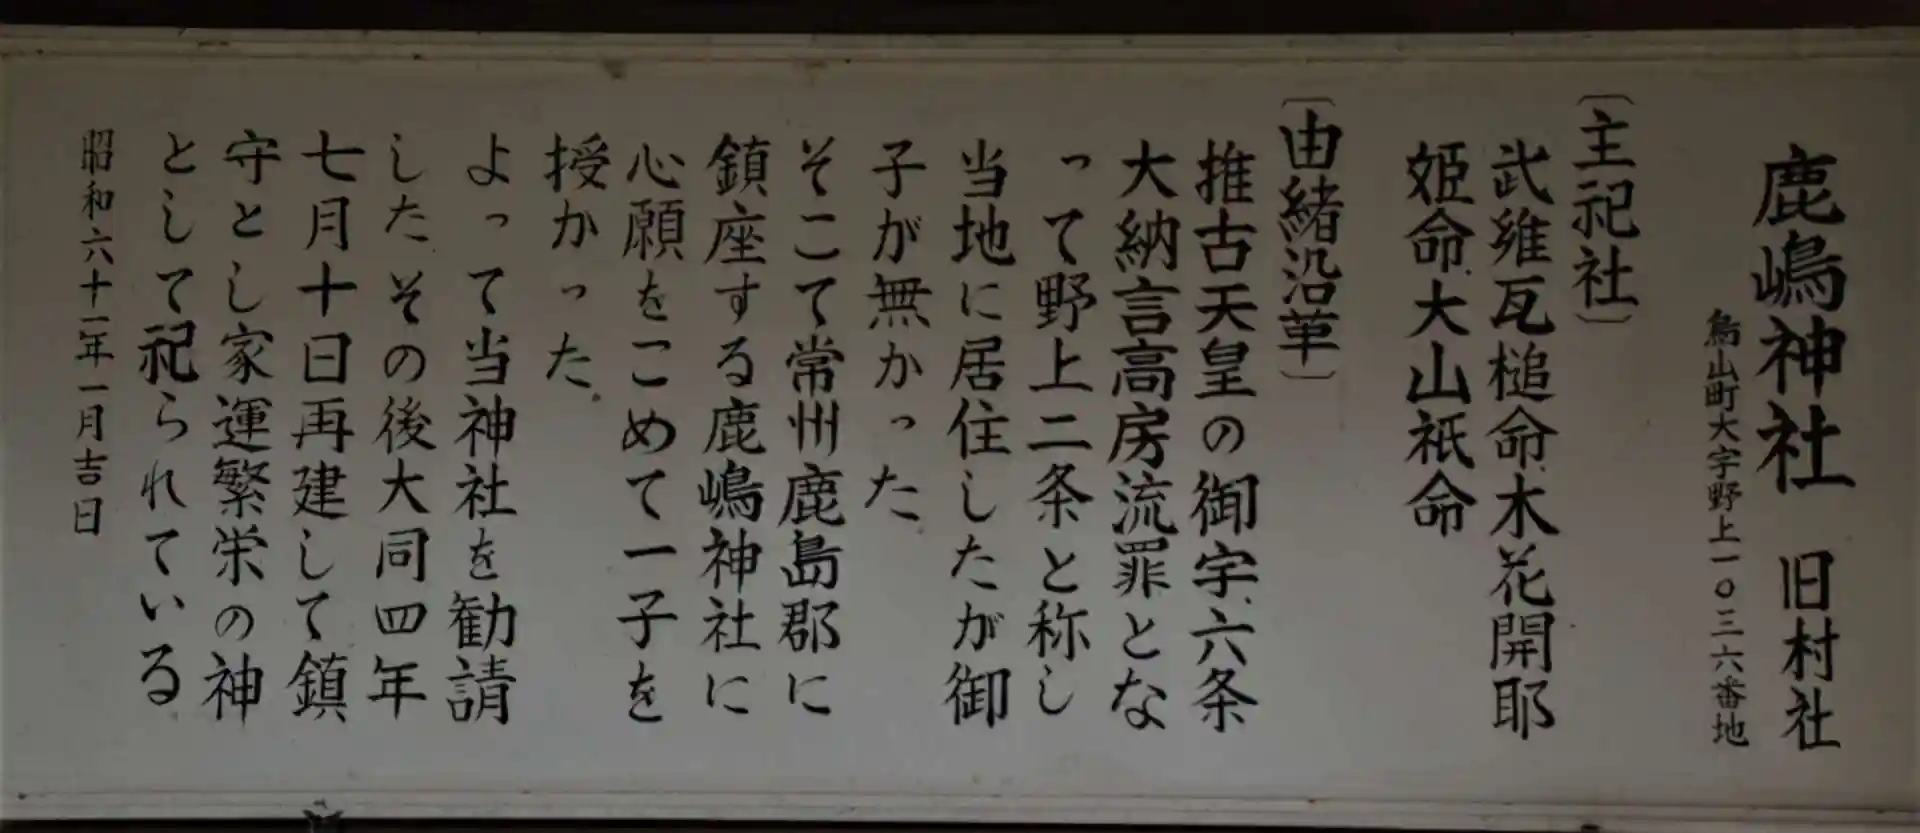 鹿嶋神社 旧村社
烏山町大字野上一〇三六番地
〔主祀社〕
武雍瓦槌命、木花開耶
姫命、大山祇命
〔由緒沿革〕
推古天皇の御字、六条
大納言高房流罪とな
って野上二条と称し
当地に居住したが御
子が無かった。
そこて常州鹿島郡に
鎮座する鹿嶋神社に
心願をこめて一子を
授かった。
よって当神社を勧請
した。その後大同四年
七月十日再建して鎮
守とし家運繁栄の神
として祀られている。
昭和六十二年一月吉日